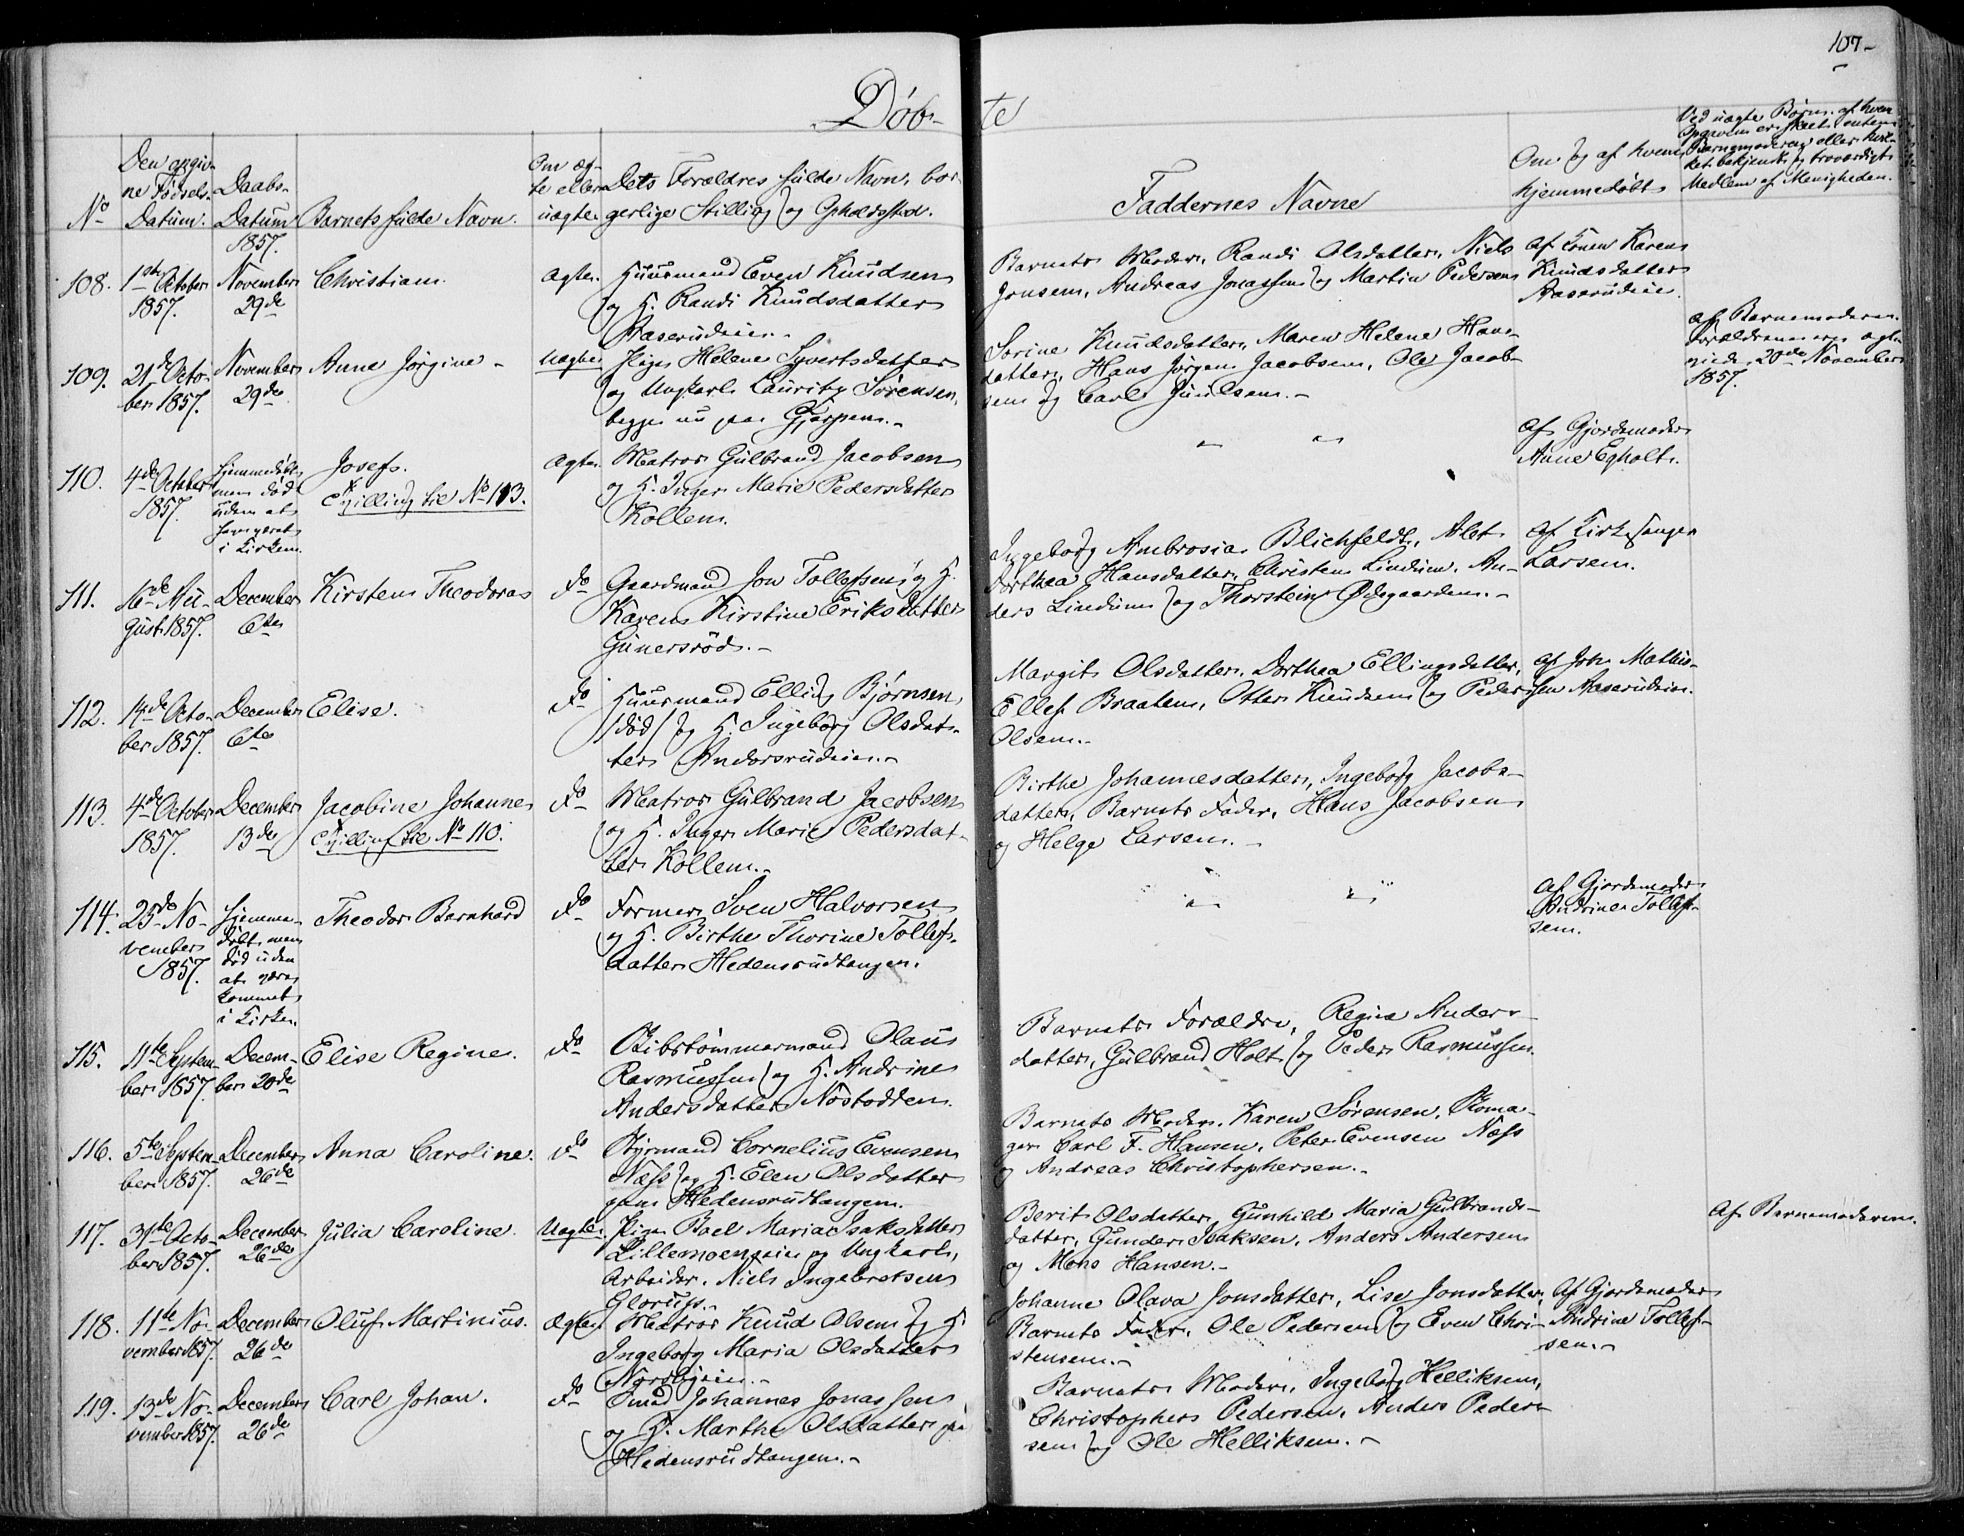 107-
Døb-
te
No
Den angiv-
ne Fødsels-
Datum.
Daabs-
Datum
1857.
Barnets fulde Navn.
Om æg-
te eller
uægte.
Dets Forældres fulde Navn, bor-
gerlige Stilling og Opholdssted.
Faddernes Navne
Om og af hvem
hjemmedøbt
Ved uægte Børn, af hvem
Opgaven er skeet, enten
Barnemoderen eller
bekjendt og troværdigt
Medlem af Menigheden.
108.
1ste October
1857.
November
29de
Christian.
Ægte.
Huusmand Even Knudsen
og H. Randi Knudsdatter
Aaserudeie.
Barnets Moder, Randi Olsdatter, Niels
Jensen, Andreas Jonassen og Martin Pedersen
af Konen Karen
Knudsdatter
Aaserudeie.
109.
21de Octo-
ber 1857.
November
29de
Anne Jørgine -
Uægte
Pige Helene Syvertsdatter
og Ungkarl Lauritz Sørensen,
begge nu paa Gjerpen.-
Sorine Knudsdatter, Maren Helene Hans-
datter, Hans Jørgen Jacobsen, Ole Jacob-
sen og Carl Juulsen.-
af Barnemoderen.
Forældrene ere ægte-
viede 20de November
1857.
110.
4de October
1857.
Hjemmedøbt,
men død
uden at
have været
i Kirken.
Josef.
Tvilling til No 113.
Ægte.
Matros Gulbrand Jacobsen
og H. Inger Marie Pedersdatter
Kollen.
" "
Af Gjordemoder
Anne Egholt.
111.
16de Au-
gust 1857.
December
6te
Kirsten Theodora
do
Gaardmand Jon Tollefsen og H.
Karen Kirstine Eriksdatter
Gunersrød.-
Ingeborg Ambrosia Blichfeldt, Alet
Dorthea Hansdatter, Christen Lindum, An-
ders Lindum og Thorstein Ødegaarden.-
Af Kirkesanger
Larsen.
112.
14de Octo-
ber 1857.
December
6te
Elise.
do
Huusmand Elling Bjørnsen,
/død/ og H. Ingeborg Olsdat-
ter Andorsrudeie.-
Margit Olsdatter, Dorthea Ellingsdatter,
Ellef Braaten, Otter Knudsen og Peder
Olsen.-
af Joh. Mathis-
sen Aaserudeie.
113.
4de October
1857.
December
13de
Jacobine Johanne
Tvilling til No 110.
do
Matros Gulbrand Jacobsen
og H. Inger Marie Pedersdat-
ter Kollen.-
Birthe Johannesdatter, Ingeborg Jacobs-
datter, Barnets Fader, Hans Jacobsen
og Helge Larsen.-
114.
25de No-
vember
1857.
Hjemme-
døbt, men
død uden
at være
kommet
i Kirken.
Theodor Bernhard
do
Former Sven Halvorsen
og H. Birthe Thorine Tollefs-
datter Hedensrudtangen.
" "
Af Gjordemoder
Andrine Tollef-
sen.
115.
11te Septem-
ber 1857.
Decem-
ber 20de
Elise Regine.
do
Skibstømmermand Olaus
Rasmussen og H. Andrine
Andersdatter Nøstodden.
Barnets Forældre, Regine Anders-
datter, Gulbrand Holt og Peder Rasmussen.
116.
5te Septem-
ber 1857.
December
26de
Anna Caroline.
do
Styrmand Cornelius Evensen
Næss og H. Elen Olsdatter
paa Hedensrudtangen.
Barnets Moder, Karen Sørensen, Skoma-
ger Carl F. Hansen, Peter Evensen Næss
og Andreas Christophersen.-
117.
31te Octo-
ber 1857.
December
26de
Julia Caroline.
Uægte.
Pige Boel Maria Isaksdatter
Lillemoeneie og Ungkarl,
Arbeider, Niels Ingebretsen
Glorup.
Berit Olsdatter, Gunhild Maria Gulbrands-
datter, Gunder Isaksen, Anders Andersen
og Mons Hansen.-
Af Barnemoderen.
118.
11te No-
vember 1857.
December
26de
Oluf Martinius.
Ægte
Matros Knud Olsen og H.
Ingeborg Maria Olsdatter
Nordbyeie.-
Johanne Olava Jonsdatter, Lise Jonsdatter,
Barnets Fader, Ole Pedersen og Even Chri-
stensen.-
Af Gjordemoder
Andrine Tollef-
sen.-
119.
13de No-
vember 1857.
December
26de
Carl Johan.
do
Smed Johannes Jonassen
og H. Marthe Olsdatter paa
Hedensrudtangen.-
Barnets Moder, Ingeborg Helliksen,
Christopher Pedersen, Anders Peder-
sen og Ole Helliksen.-